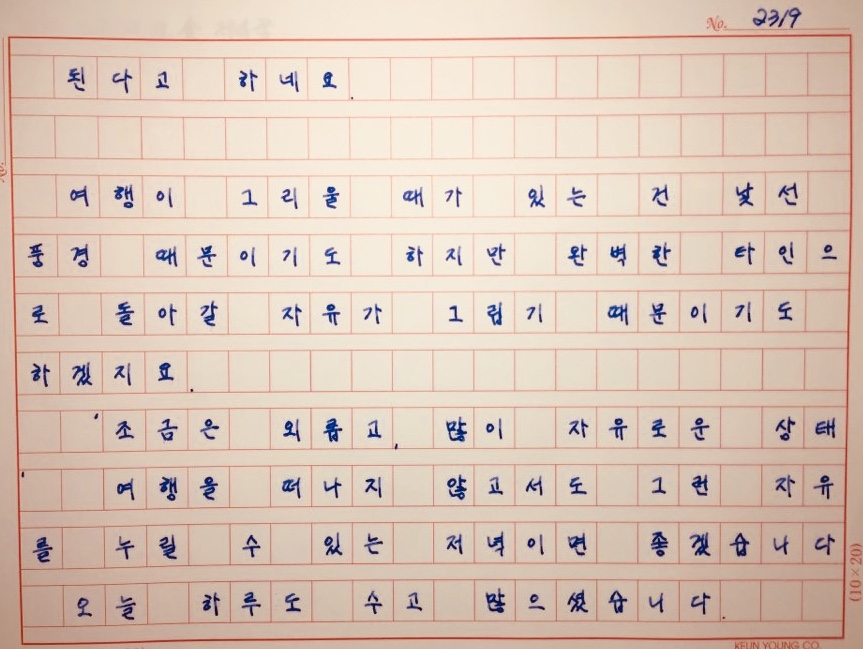 No. 2319
된다고 하네요.
여행이 그리울 때가 있는 건 낯선
풍경 때문이기도 하지만 완벽한 타인으
로 돌아갈 자유가 그립기 때문이기도
하겠지요.
'조금은 외롭고, 많이 자유로운 상태
' 여행을 떠나지 않고서도 그런 자유
를 누릴 수 있는 저녁이면 좋겠습니다
오늘 하루도 수고 많으셨습니다.
(10×20)
KEUN YOUNG CO.